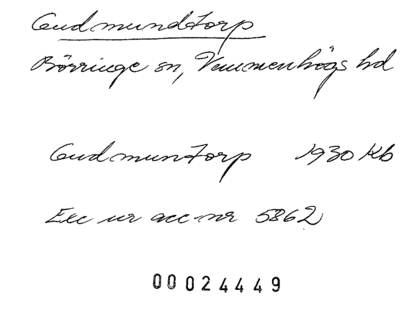 Gudmundtorp
Börringe sn, Vemmenhögs hd
Gudmuntorp 1930 Kb
Exc ur acc nr 5862
00024449